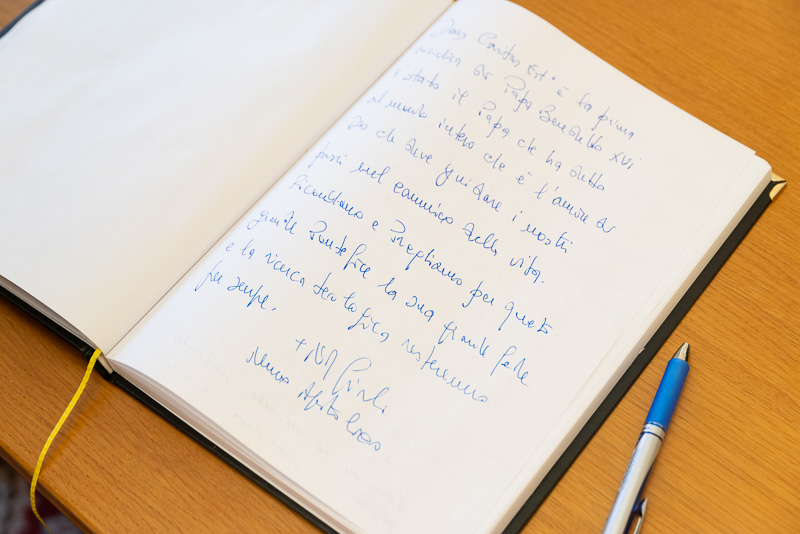 Deus Caritas Est è la prima
enciclica di Papa Benedetto XVI
è stato il Papa che ha detto
al mondo intero che è l'amore di
Dio che deve guidare i nostri
passi nel cammino della vita.
Ricordiamo e Preghiamo per questo
grande Pontefice la sua grande fede
e la ricerca teologica resteranno
per sempre.
Nunzio Apostolico